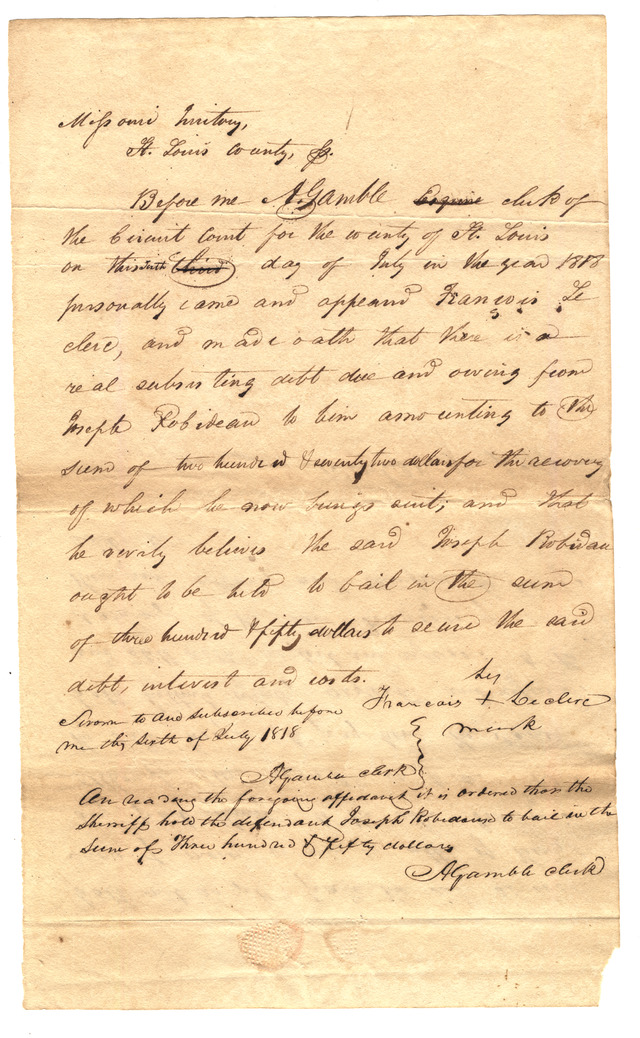 Missouri Territory,
St. Louis County, ss.
Before me A. Gamble Esquire clerk of
the Circuit Court for the county of St. Louis
on this sixth third day of July in the year 1818
personally came and appeared Francois Le
clerc, and made oath that there is a
real subsisting debt due and owing from
Joseph Robideau to him amounting to the
sum of two hundred & seventy two dollars for the recovery
of which he now brings suit; and that
he verily believes the said Joseph Robideau
ought to be held to bail in the sum
of three hundred & fifty dollars to secure the said
debt, interest and costs.
his
Francois + Leclerc
mark
Sworn to and subscribed before
me this sixth of July 1818
A Gamble clerk
On reading the foregoing affidavit it is ordered that the
Sherriff hold the defendant Joseph Robidoux to bail in the
Sum of Three hundred & fifty dollars
A Gamble clerk